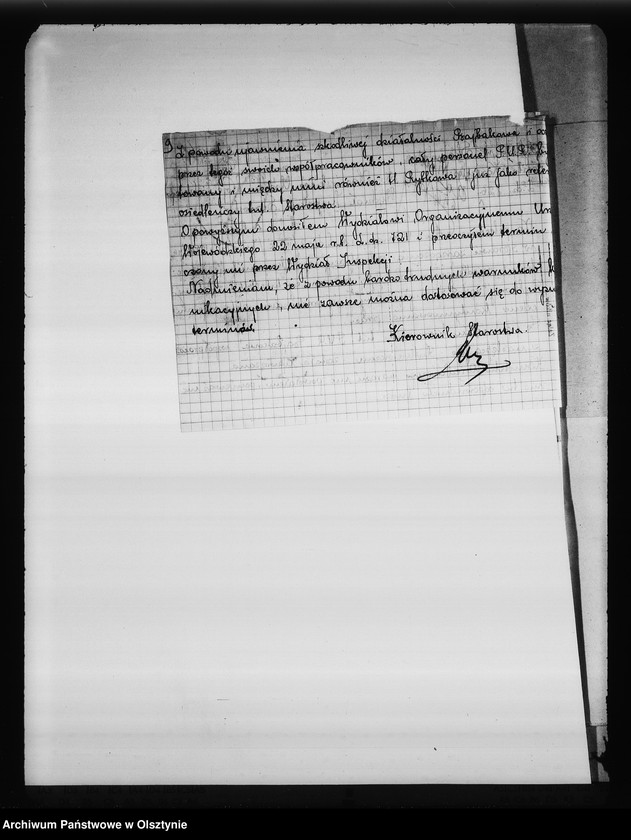 9 Z powodu ujawnienia szkodliwej działalności Szajbakowa i
przez tegoż swoich współpracowników cały personel P.U.R.
i między nimi również M Rytkawa już jako
osiedleńczy tut. Starostwa.
O powyższym doniosłem Wydziałowi Organizacyjnemu
Wojewódzkiego 22 maja r.b. L.dz. 121 i przeoczyłem termin
mi przez Wydział Inspekcji.
Nadmieniam, że z powodu bardzo trudnych warunków
nikacyjnych, nie zawsze można dostosować się do
terminów.
Kierownik Starostwa.
Archiwum Państwowe w Olsztynie